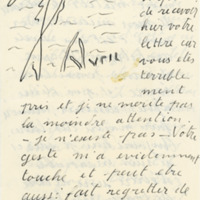 de recevoir
hier votre
lettre car
vous etes
Avril
terrible
ment
pris et je ne merite pas
la moindre attention
- je n'existe pas - Votre
geste m'a evidemment
touche et peut etre
aussi fait regretter de